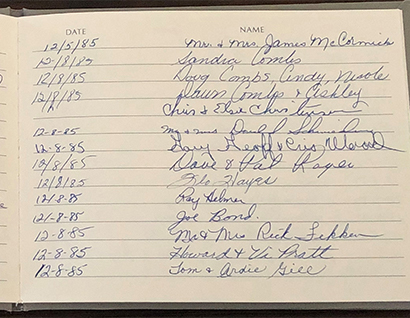 DATE NAME
12/5/85 Mr. & Mrs. James McCormick
12/8/85 Sandra Combs
12/8/85 Doug Combs, Cindy, Nicole
12/8/85 Dawn Combs & Ashley
Chris & Elsie Christensen
12-8-85 Mr & Mrs
12-8-85 Gary Geoff & Cris
12/8/85 Dave & Hal
12/8/85 Flo Hayes
12-8-85 Ray Helmer
12-8-85 Joe Bond.
12-8-85 Mr & Mrs Rich
12-8-85 Howard & Vi Pratt
12-8-85 Tom & Ardie Gill